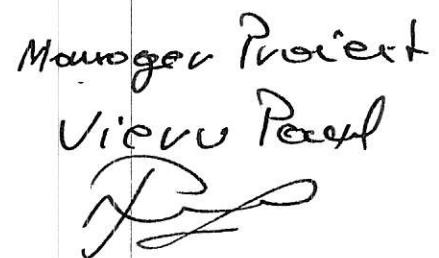 Manager Proiect
Vieru Pavel